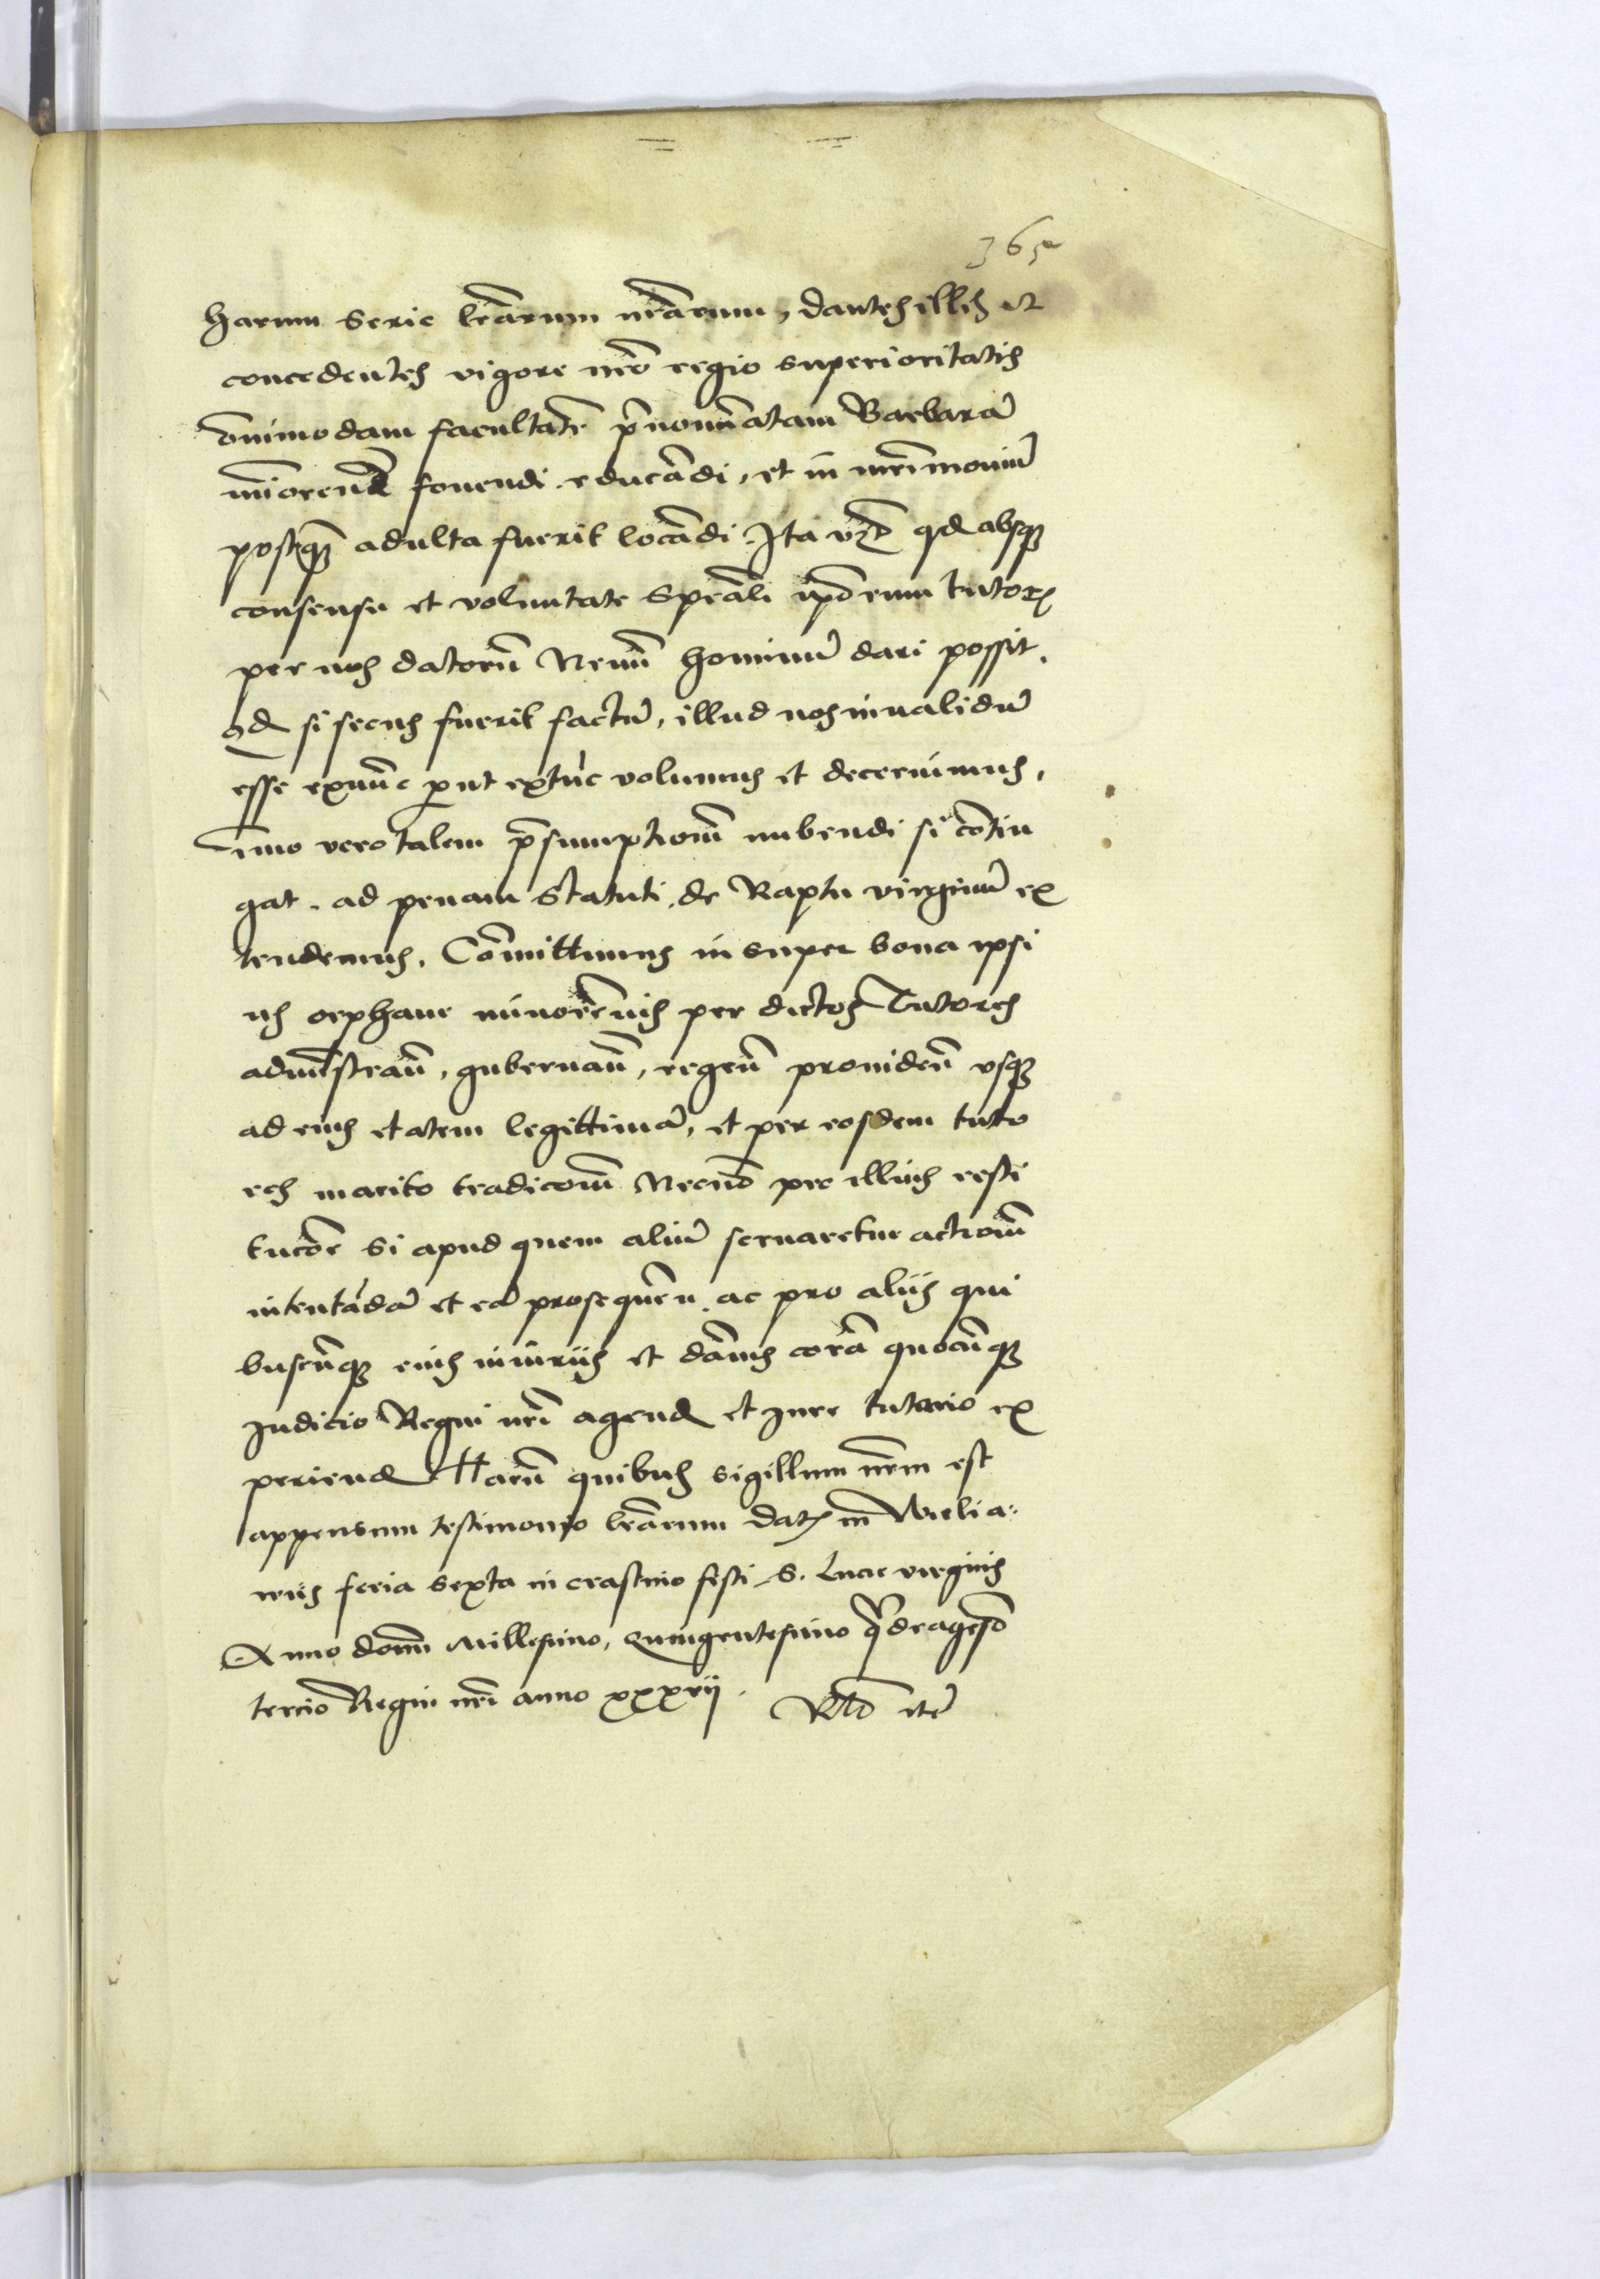 365
harum serie lrarum nrarum, dantes illis et
concedentes vigore nro regio superioritatis
omnimodam facultate pnominatam Barbara
miorend fouendi educadi, et in mrimoniu
postq adulta fuerit locadi. Ita vzd qd absq
consensu et voluntate speali ipdorum tutorz
per nos datoru Nemi hominu dari possit.
qd si secus fuerit factu, illud nos inualidu
esse exnuc put extuc volumus et decernimus,
imo vero talem psumptiom nubendi si contin
gat. ad penam Statuti de Raptu virginu ex
tendemus. Comittimus insuper bona ipsi
us orphane minorenis per dictos Tutores
admistran, gubernan, regen prouiden vsq
ad eius etatem legittima, et per eosdem tuto
res marito tradicom Necno per illius resti
tucoe si apud quem aliu seruaretur actiom
intentada et ea prosequen ac pro aliis qui
buscuq eius iniuriis et danis cora quocuq
Iudicio Regni nri agend et Iure tutorio ex
periend Haru quibus sigillum nrm est
appensum testimonio lrarum datz in Vielia:
rviis feria sexta in crastino festi S. Lucie virginis
Anno domi Millesimo, Quingentesimo qdragesio
tercio Regni nri anno xxxvij. Rlo ite